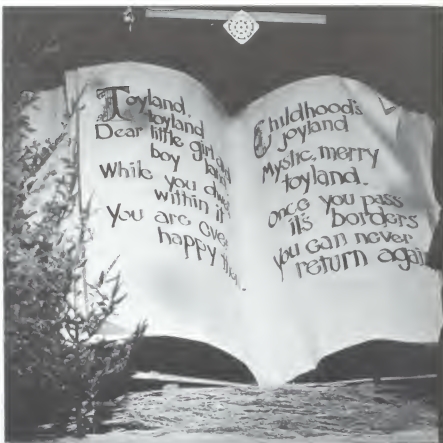 Toyland.
toyland
Dear little girl and
boy land
While you dwell
within it
You are ever
happy then.
Childhood's
joyland
Mystic, merry
toyland.
once you pass
its borders
you can never
return again